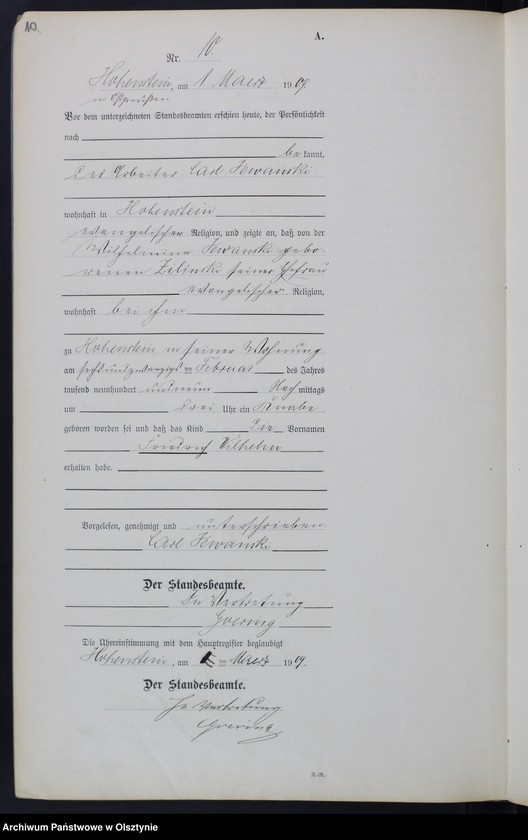 10.
A.
Nr. 10.
Hohenstein, am 1. Maerz 1909.
in Ostpreußen
Vor dem unterzeichneten Standesbeamten erschien heute, der Persönlichkeit
nach
be kannt,
der Arbeiter Carl Jewanski
wohnhaft in Hohenstein
evangelischer Religion, und zeigte an, daß von der
Wilhelmine Jewanski gebo-
renen Zilinski seiner Ehefrau
evangelischer Religion,
wohnhaft bei ihm
zu Hohenstein in seiner Wohnung
am sechsundzwanzigsten Februar des Jahres
tausend neunhundert und neun Nach mittags
um drei Uhr ein Knabe
geboren worden sei und daß das Kind die Vornamen
Friedrich Wilhelm
erhalten habe.
Vorgelesen, genehmigt und unterschrieben
Carl Jewanski
Der Standesbeamte.
In Vertretung
Goering
Die Übereinstimmung mit dem Hauptregister beglaubigt
Hohenstein, am Maerz 1909.
Der Standesbeamte.
In Vertretung
Goering
Archiwum Państwowe w Olsztynie